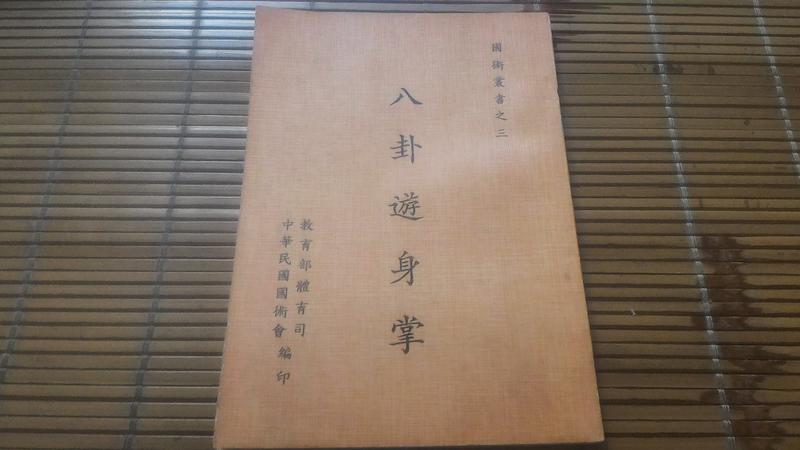 國術叢書之三
八卦遊身掌
教育部體育司
中華民國國術會 編印